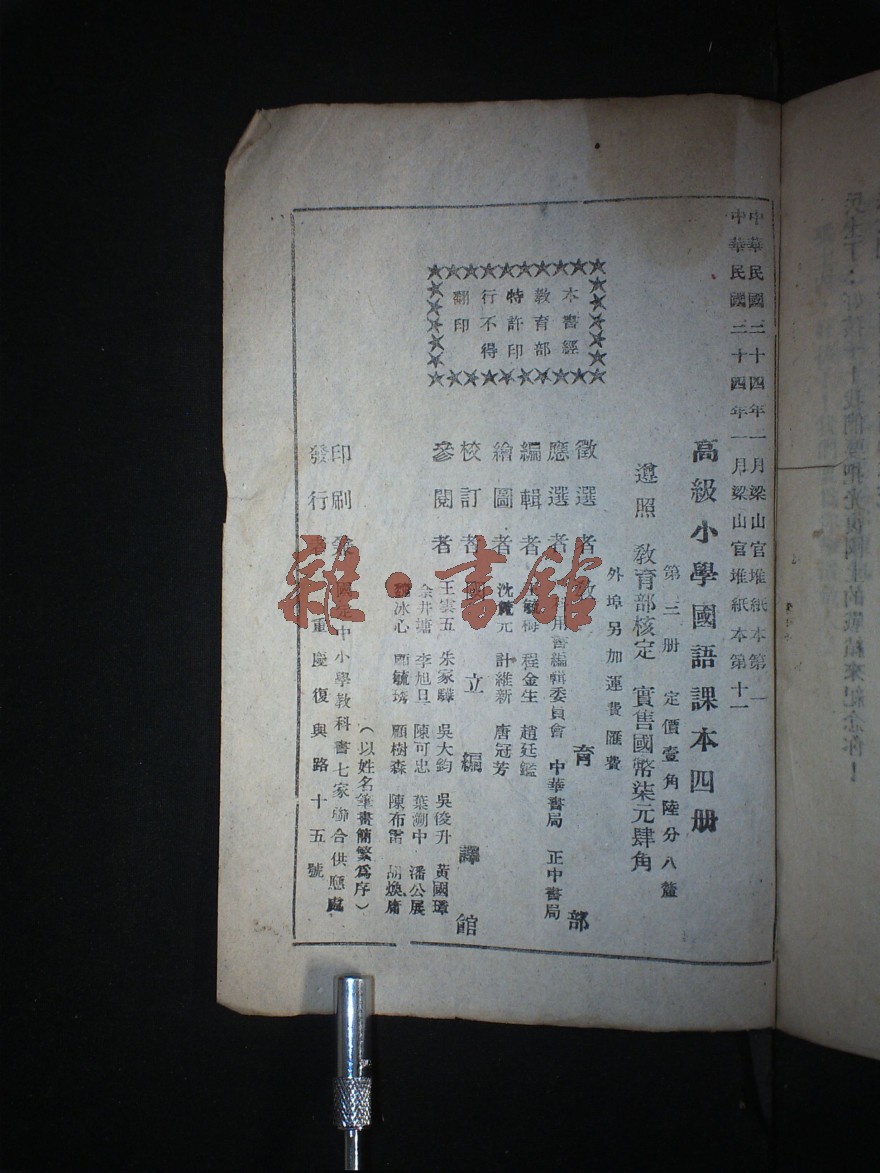 中華民國三十四年一月梁山官堆紙本第一
中華民國三十四年一月梁山官堆紙本第十一
高級小學國語課本四册
第三册 定價壹角陸分八釐
遵照 教育部核定 實售國幣柒元肆角
外埠另加運費匯費
本書經
教育部
特許印
行不得
翻印
徵選者 教育部
應選者 用書編輯委員會 中華書局 正中書局
編輯者 梅 程金生 趙廷鑑
繪圖者 沈 元 計維新 唐冠芳
校訂者 國立編譯館
參閱者 王雲五 朱家驊 吳大鈞 吳俊升 黃國璋
余井塘 李旭旦 陳可忠 葉溯中 潘公展
冰心 顧毓琇 顧樹森 陳布雷 胡煥庸
(以姓名筆畫簡繁爲序)
印刷 國定中小學教科書七家聯合供應處
發行 重慶復興路十五號
雜·書館